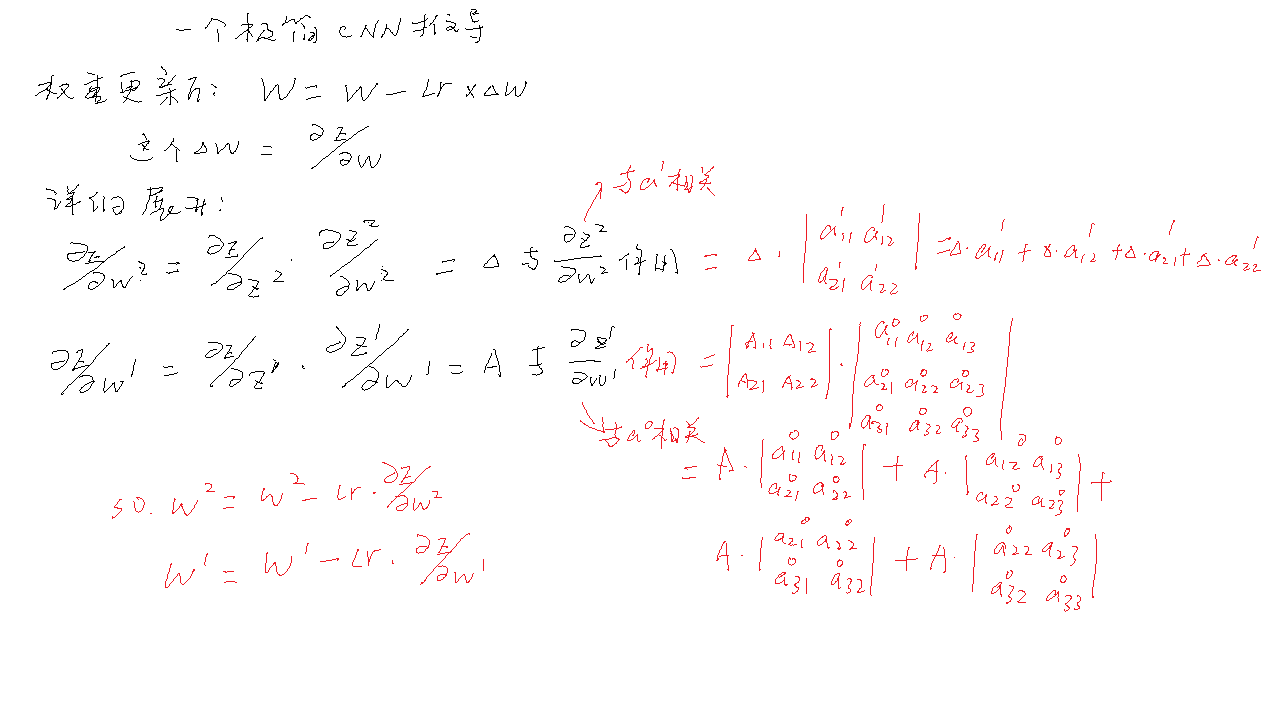 一个极简CNN推导
权重更新后: W = W - Lr × ΔW
这个ΔW = ∂Z/∂W
详细展开:
与a¹相关
∂Z/∂W² = ∂Z/∂Z² · ∂Z²/∂W² = Δ 与 ∂Z²/∂W² 作用 = Δ · |a¹₁₁ a¹₁₂ a¹₂₁ a¹₂₂| = Δ·a¹₁₁ + Δ·a¹₁₂ + Δ·a¹₂₁ + Δ·a¹₂₂
∂Z/∂W¹ = ∂Z/∂Z¹ · ∂Z¹/∂W¹ = A 与 ∂Z¹/∂W¹ 作用 = |A₁₁ A₁₂ A₂₁ A₂₂| · |a⁰₁₁ a⁰₁₂ a⁰₁₃ a⁰₂₁ a⁰₂₂ a⁰₂₃ a⁰₃₁ a⁰₃₂ a⁰₃₃|
与a⁰相关
= A · |a⁰₁₁ a⁰₁₂ a⁰₂₁ a⁰₂₂| + A · |a⁰₁₂ a⁰₁₃ a⁰₂₂ a⁰₂₃| +
A · |a⁰₂₁ a⁰₂₂ a⁰₃₁ a⁰₃₂| + A · |a⁰₂₂ a⁰₂₃ a⁰₃₂ a⁰₃₃|
so. W² = W² - Lr · ∂Z/∂W²
W¹ = W¹ - Lr · ∂Z/∂W¹